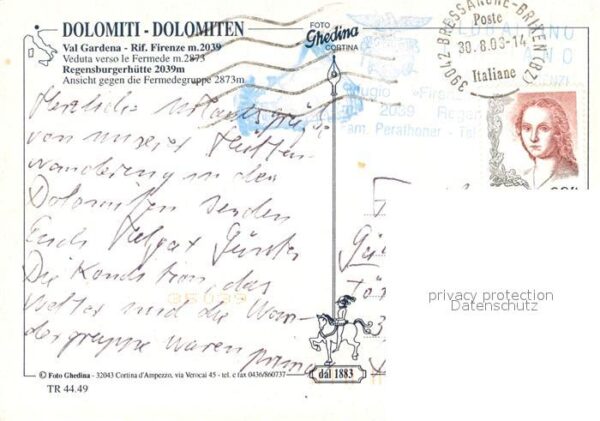 DOLOMITI - DOLOMITEN
Val Gardena - Rif. Firenze m.2039
Veduta verso le Fermede m.2873
Regensburgerhütte 2039m
Ansicht gegen die Fermedegruppe 2873m
FOTO
Ghedina
CORTINA
39042 BRESSANONE-BRIXEN (BZ)
Poste
30.8.03-14
Italiane
2039
fam. Perathoner - Tel
Herzliche Urlaubsgrüße
von unserer Hütten
wanderung in den
Dolomiten senden
Euch Helga Günter
Die Kondition, das
Wetter und die Wan-
dergruppe waren prima
privacy protection
Datenschutz
dal 1883
© Foto Ghedina - 32043 Cortina d'Ampezzo, via Verocai 45 - tel. e fax 0436/860737
TR 44.49